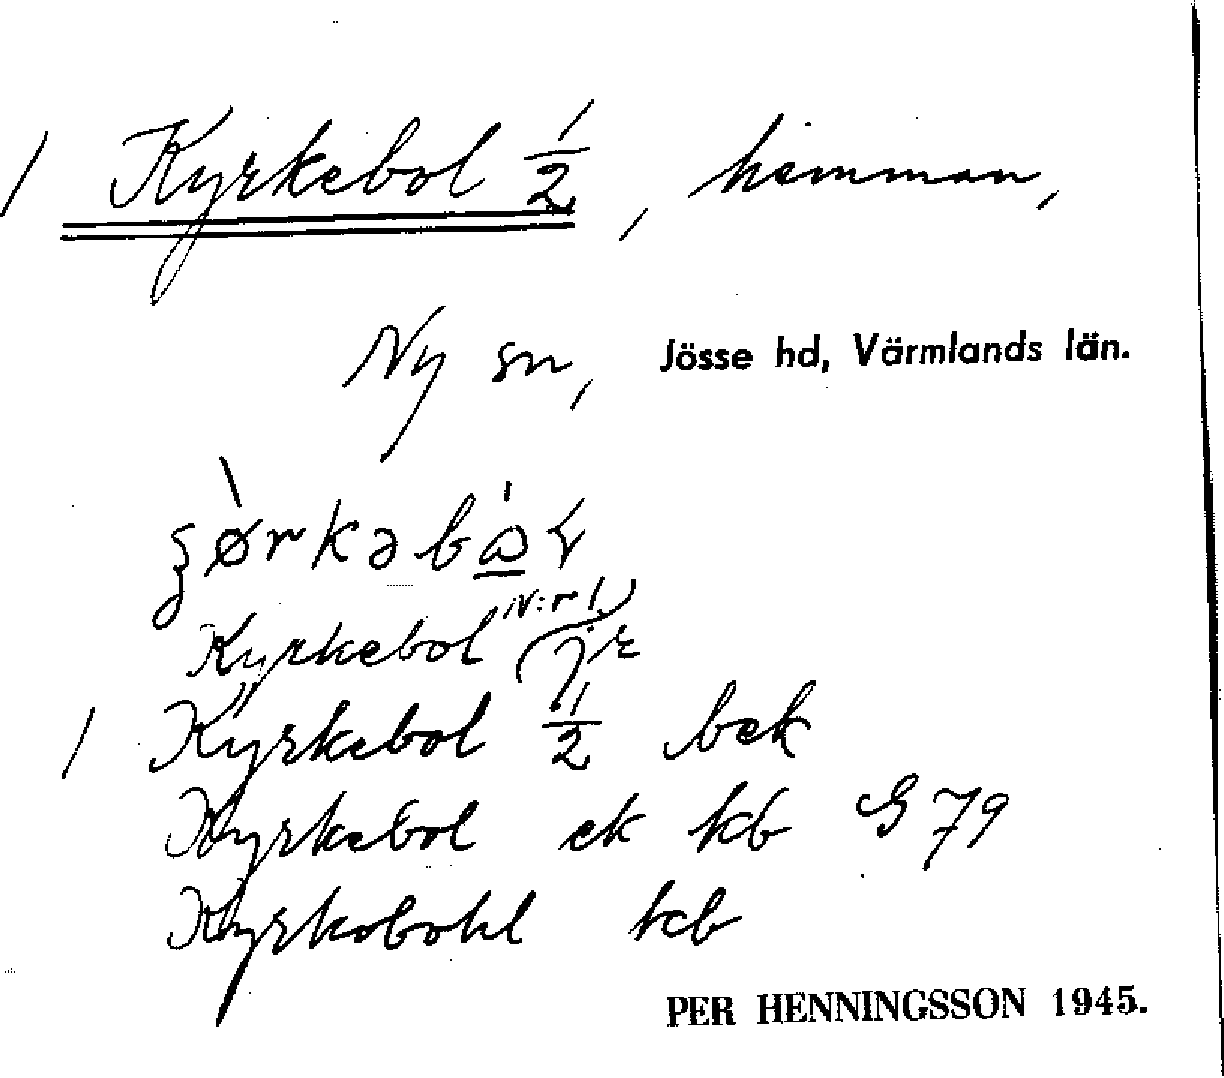 1 Kyrkebol 1/2, hemman,
Ny sn, Jösse hd, Värmlands län.
Kyrkebol
1 Kyrkebol 1/2 bek
Kyrkebol ek kb G 79
Kyrkobohl kb
PER HENNINGSSON 1945.